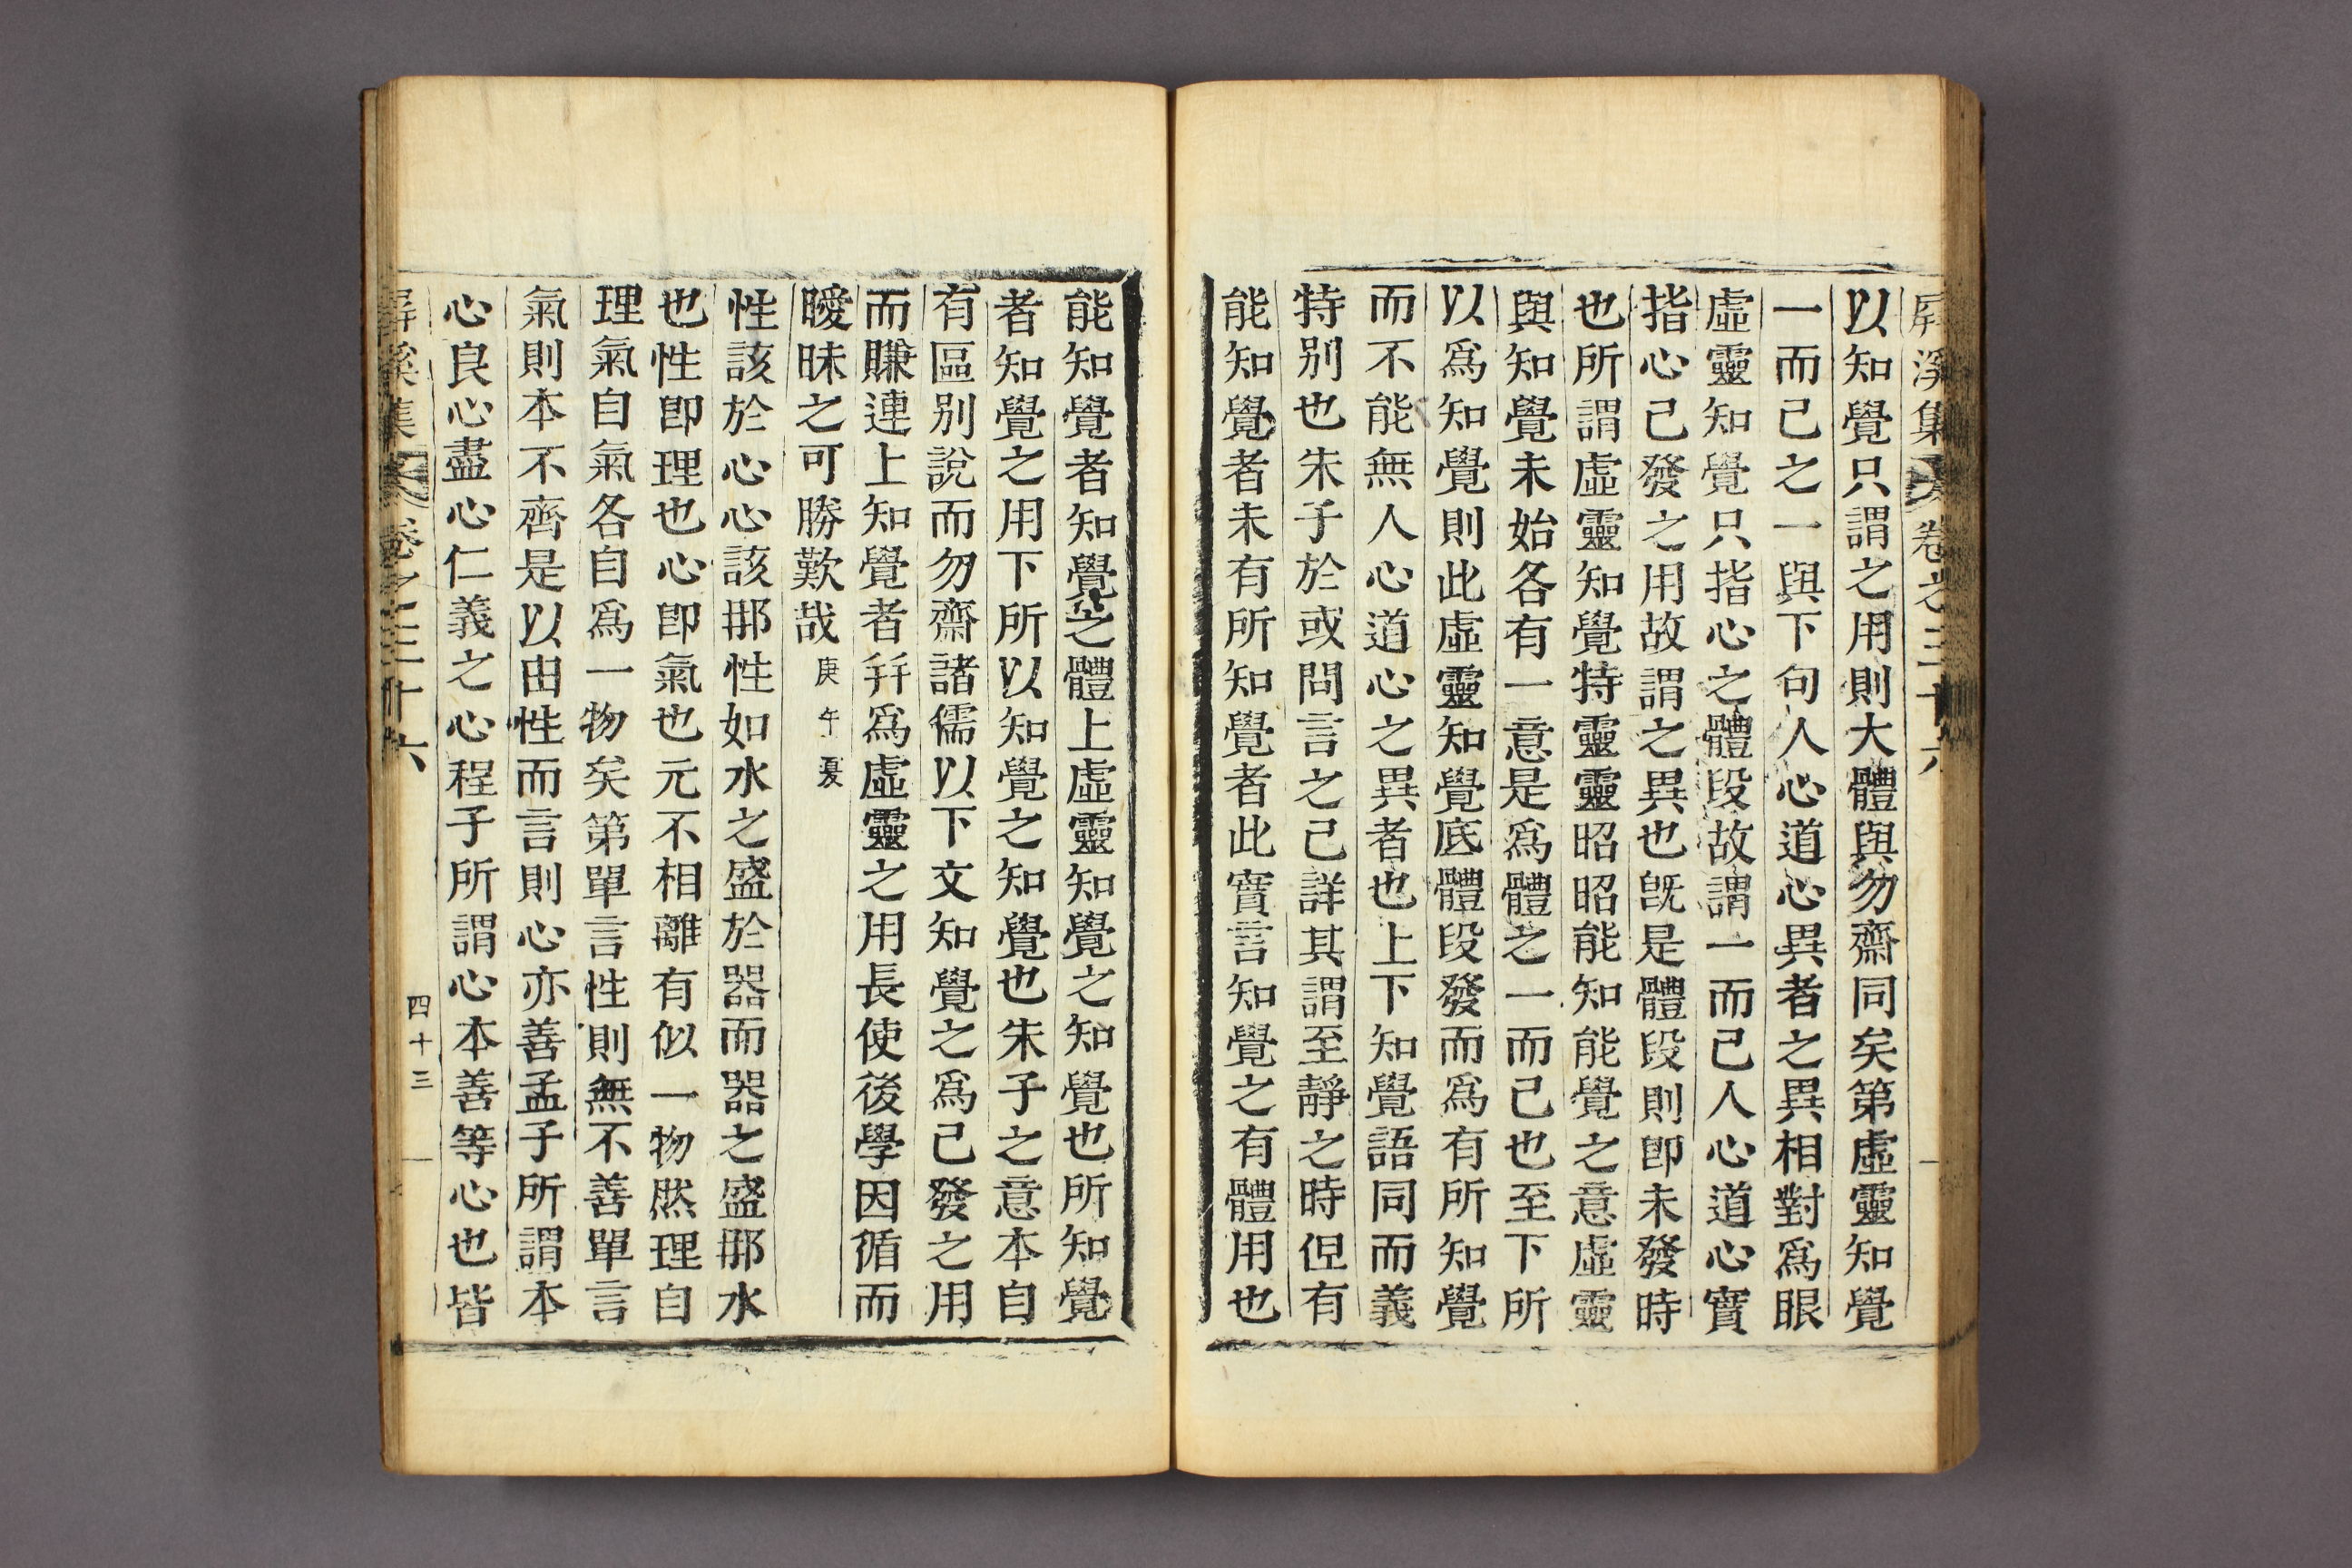 屛溪集 卷之三十六
以知覺只謂之用則大體與勿齋同矣第虛靈知覺
一而已之一與下句人心道心異者之異相對爲眼
虛靈知覺只指心之體段故謂一而已人心道心實
指心已發之用故謂之異也旣是體段則卽未發時
也所謂虛靈知覺特靈靈昭昭能知能覺之意虛靈
與知覺未始各有一意是爲體之一而已也至下所
以爲知覺則此虛靈知覺底體段發而爲有所知覺
而不能無人心道心之異者也上下知覺語同而義
特别也朱子於或問言之已詳其謂至靜之時但有
能知覺者未有所知覺者此實言知覺之有體用也
能知覺者知覺之體上虛靈知覺之知覺也所知覺
者知覺之用下所以知覺之知覺也朱子之意本自
有區别說而勿齋諸儒以下文知覺之爲已發之用
而賺連上知覺者幷爲虛靈之用長使後學因循而
曖昧之可勝歎哉 庚午夏
性該於心心該那性如水之盛於器而器之盛那水
也性卽理也心卽氣也元不相離有似一物然理自
理氣自氣各自爲一物矣第單言性則無不善單言
氣則本不齊是以由性而言則心亦善孟子所謂本
心良心盡心仁義之心程子所謂心本善等心也皆
屛溪集 卷之三十六 四十三